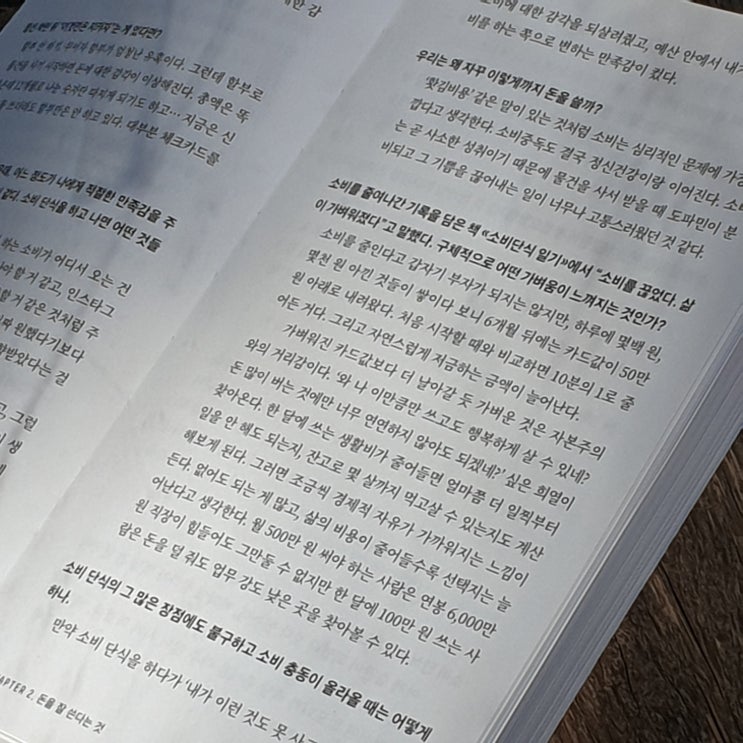 게 한 감
할부로
유혹이다. 그런데 할부로
돈에 대한 감각이 이상해진다. 총액은 똑
나눈 숫자만 따지게 되기도 하고… 지금은 신
할부만은 안 하고 있다. 대부분 체크카드를
어느 정도가 나에게 적절한 만족감을 주
같다. 소비 단식을 하고 나면 어떤 것들
하는 소비가 어디서 오는 건
야 할 거 같고, 인스타그
할 거 같은 것처럼 주
원했다기보다
받았다는 걸
그럼
생
에 대한 감각을 되살려줬고, 예산 안에서 내가
비를 하는 쪽으로 변하는 만족감이 컸다.
우리는 왜 자꾸 이렇게까지 돈을 쓸까?
'홧김비용' 같은 말이 있는 것처럼 소비는 심리적인 문제에 가
깝다고 생각한다. 소비중독도 결국 정신건강이랑 이어진다. 소비
는 곧 사소한 성취이기 때문에 물건을 사서 받을 때 도파민이 분
비되고 그 기쁨을 끊어내는 일이 너무나 고통스러웠던 것 같다.
소비를 줄여나간 기록을 담은 책 《소비단식 일기》에서 "소비를 끊었다. 삶
이 가벼워졌다"고 말했다. 구체적으로 어떤 가벼움이 느껴지는 것인가?
소비를 줄인다고 갑자기 부자가 되지는 않지만, 하루에 몇백 원,
몇천 원 아낀 것들이 쌓이다 보니 6개월 뒤에는 카드값이 50만
원 아래로 내려왔다. 처음 시작할 때와 비교하면 10분의 1로 줄
어든 거다. 그리고 자연스럽게 저금하는 금액이 늘어난다.
가벼워진 카드값보다 더 날아갈 듯 가벼운 것은 자본주의
와의 거리감이다. '와 나 이만큼만 쓰고도 행복하게 살 수 있네?
돈 많이 버는 것에만 너무 연연하지 않아도 되겠네?' 싶은 희열이
찾아온다. 한 달에 쓰는 생활비가 줄어들면 얼마쯤 더 일찍부터
일을 안 해도 되는지, 잔고로 몇 살까지 먹고살 수 있는지도 계산
해보게 된다. 그러면 조금씩 경제적 자유가 가까워지는 느낌이
든다. 없어도 되는 게 많고, 삶의 비용이 줄어들수록 선택지는 늘
어난다고 생각한다. 월 500만 원 써야 하는 사람은 연봉 6,000만
원 직장이 힘들어도 그만둘 수 없지만 한 달에 100만 원 쓰는 사
람은 돈을 덜 줘도 업무 강도 낮은 곳을 찾아볼 수 있다.
소비 단식의 그 많은 장점에도 불구하고 소비 충동이 올라올 때는 어떻게
하나.
만약 소비 단식을 하다가 '내가 이런 것도 못 사
APTER 2. 돈을 잘 쓴다는 것